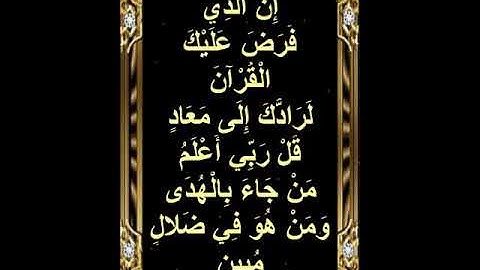 إِنَّ الَّذِي
فَرَضَ عَلَيْكَ
الْقُرْآنَ
لَرَادُّكَ إِلَى مَعَادٍ
قُلْ رَبِّي أَعْلَمُ
مَنْ جَاءَ بِالْهُدَى
وَمَنْ هُوَ فِي ضَلَالٍ
مُبِينٍ